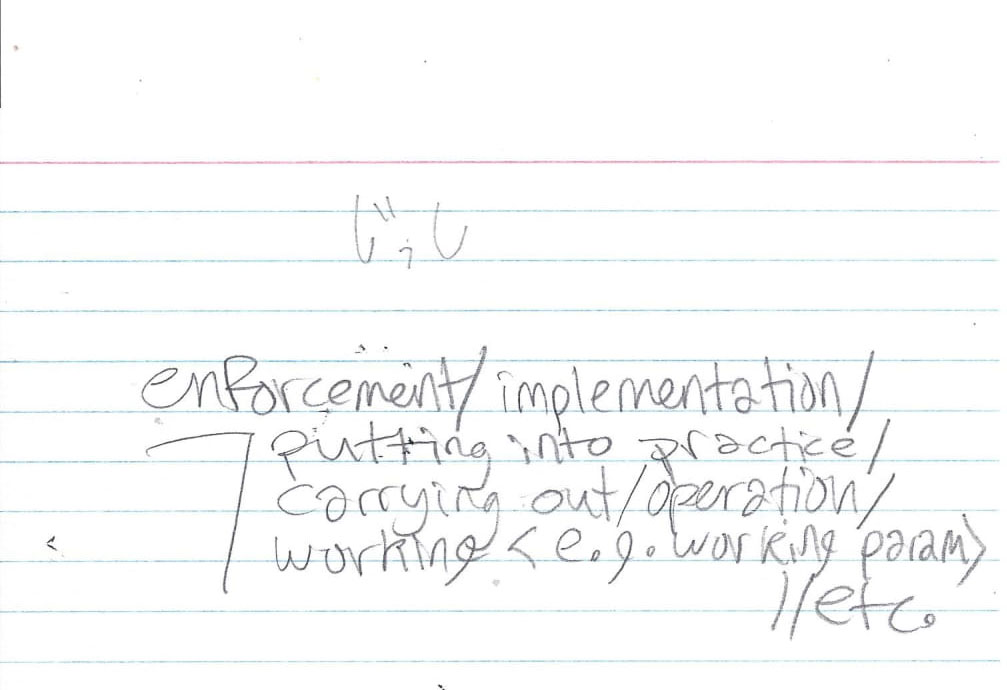 じっし
enforcement/implementation/
putting into practice/
carrying out/operation/
working <e.g. working param>
//etc.